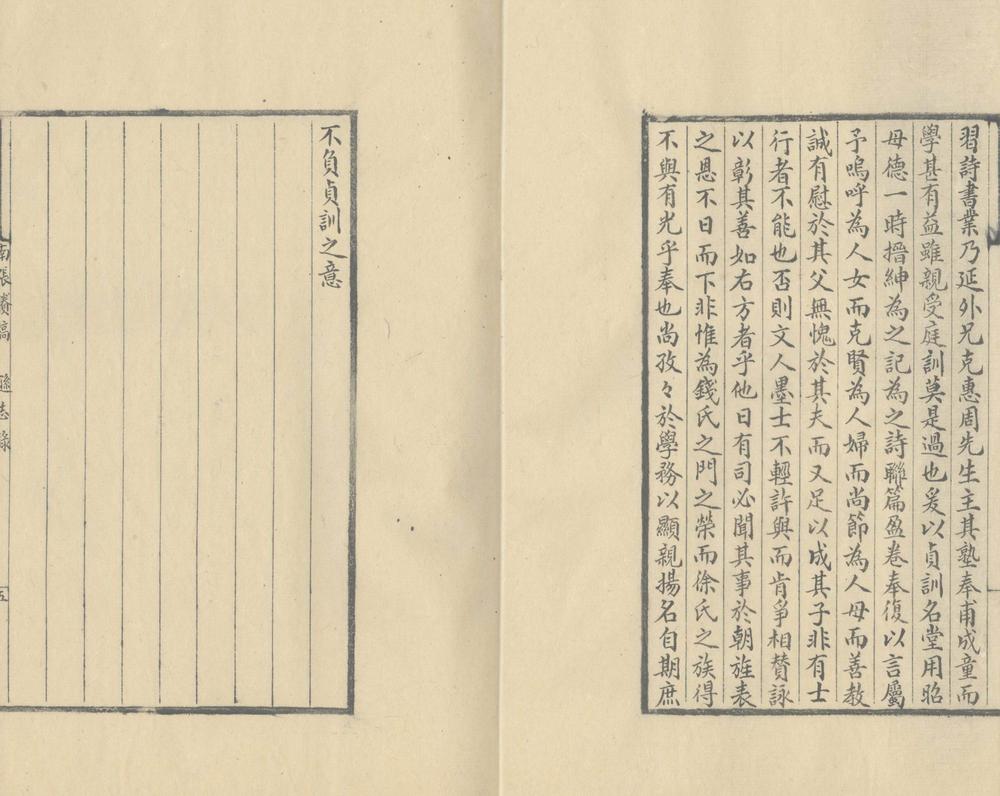 習詩書業乃延外兄克惠周先生主其塾奉甫成童而
學甚有益雖親受庭訓莫是過也爰以貞訓名堂用昭
母德一時搢紳為之記為之詩聯篇盈卷奉復以言屬
予嗚呼為人女而克賢為人婦而尚節為人母而善教
誠有慰於其父無愧於其夫而又足以成其子非有士
行者不能也否則文人墨士不輕許與而肯爭相贊詠
以彰其善如右方者乎他日有司必聞其事於朝旌表
之恩不日而下非惟為錢氏之門之榮而徐氏之族得
不與有光乎奉也尚孜々於學務以顯親揚名自期庶
不負貞訓之意
南張賡稿 遜志錄 五